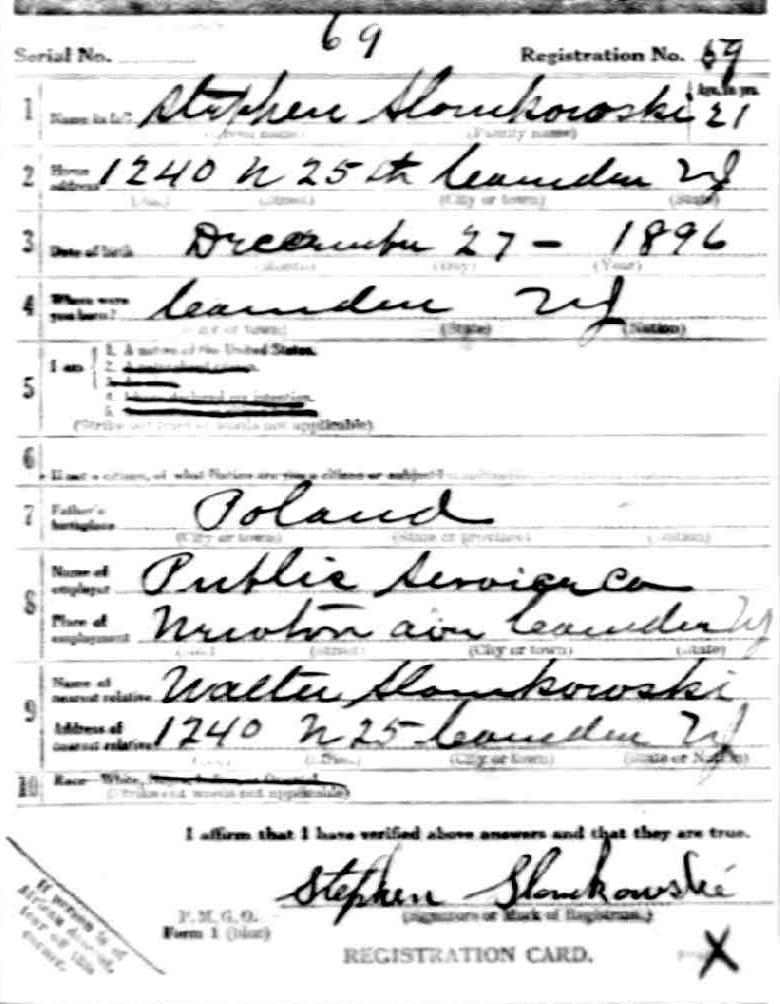 69
Serial No. Registration No. 69
1 Name in full Stephen Slomkowski Age, in yrs. 21
(Given name) (Family name)
2 Home address 1240 N 25 th Camden NJ
(No.) (Street) (City or town) (State)
3 Date of birth December 27 - 1896
(Month) (Day) (Year)
4 Where were you born? Camden NJ
(City or town) (State) (Nation)
5 I am
1. A native of the United States.
2.
3.
4. I have declared my intention.
5.
(Strike out lines or words not applicable)
6 If not a citizen, of what Nation are you a citizen or subject?
7 Father's birthplace Poland
(City or town) (State or province) (Nation)
8 Name of employer Public Service Co
Place of employment Newton ave Camden NJ
(No.) (Street) (City or town) (State)
9 Name of nearest relative Walter Slomkowski
Address of nearest relative 1240 N 25 - Camden NJ
(No.) (Street) (City or town) (State or Nation)
10 Race—White,
(Strike out words not applicable)
I affirm that I have verified above answers and that they are true.
Stephen Slomkowski
P. M. G. O.
Form 1 (blue)
(Signature or Mark of Registrant.)
If person is of African descent, tear off this corner.
REGISTRATION CARD.
X